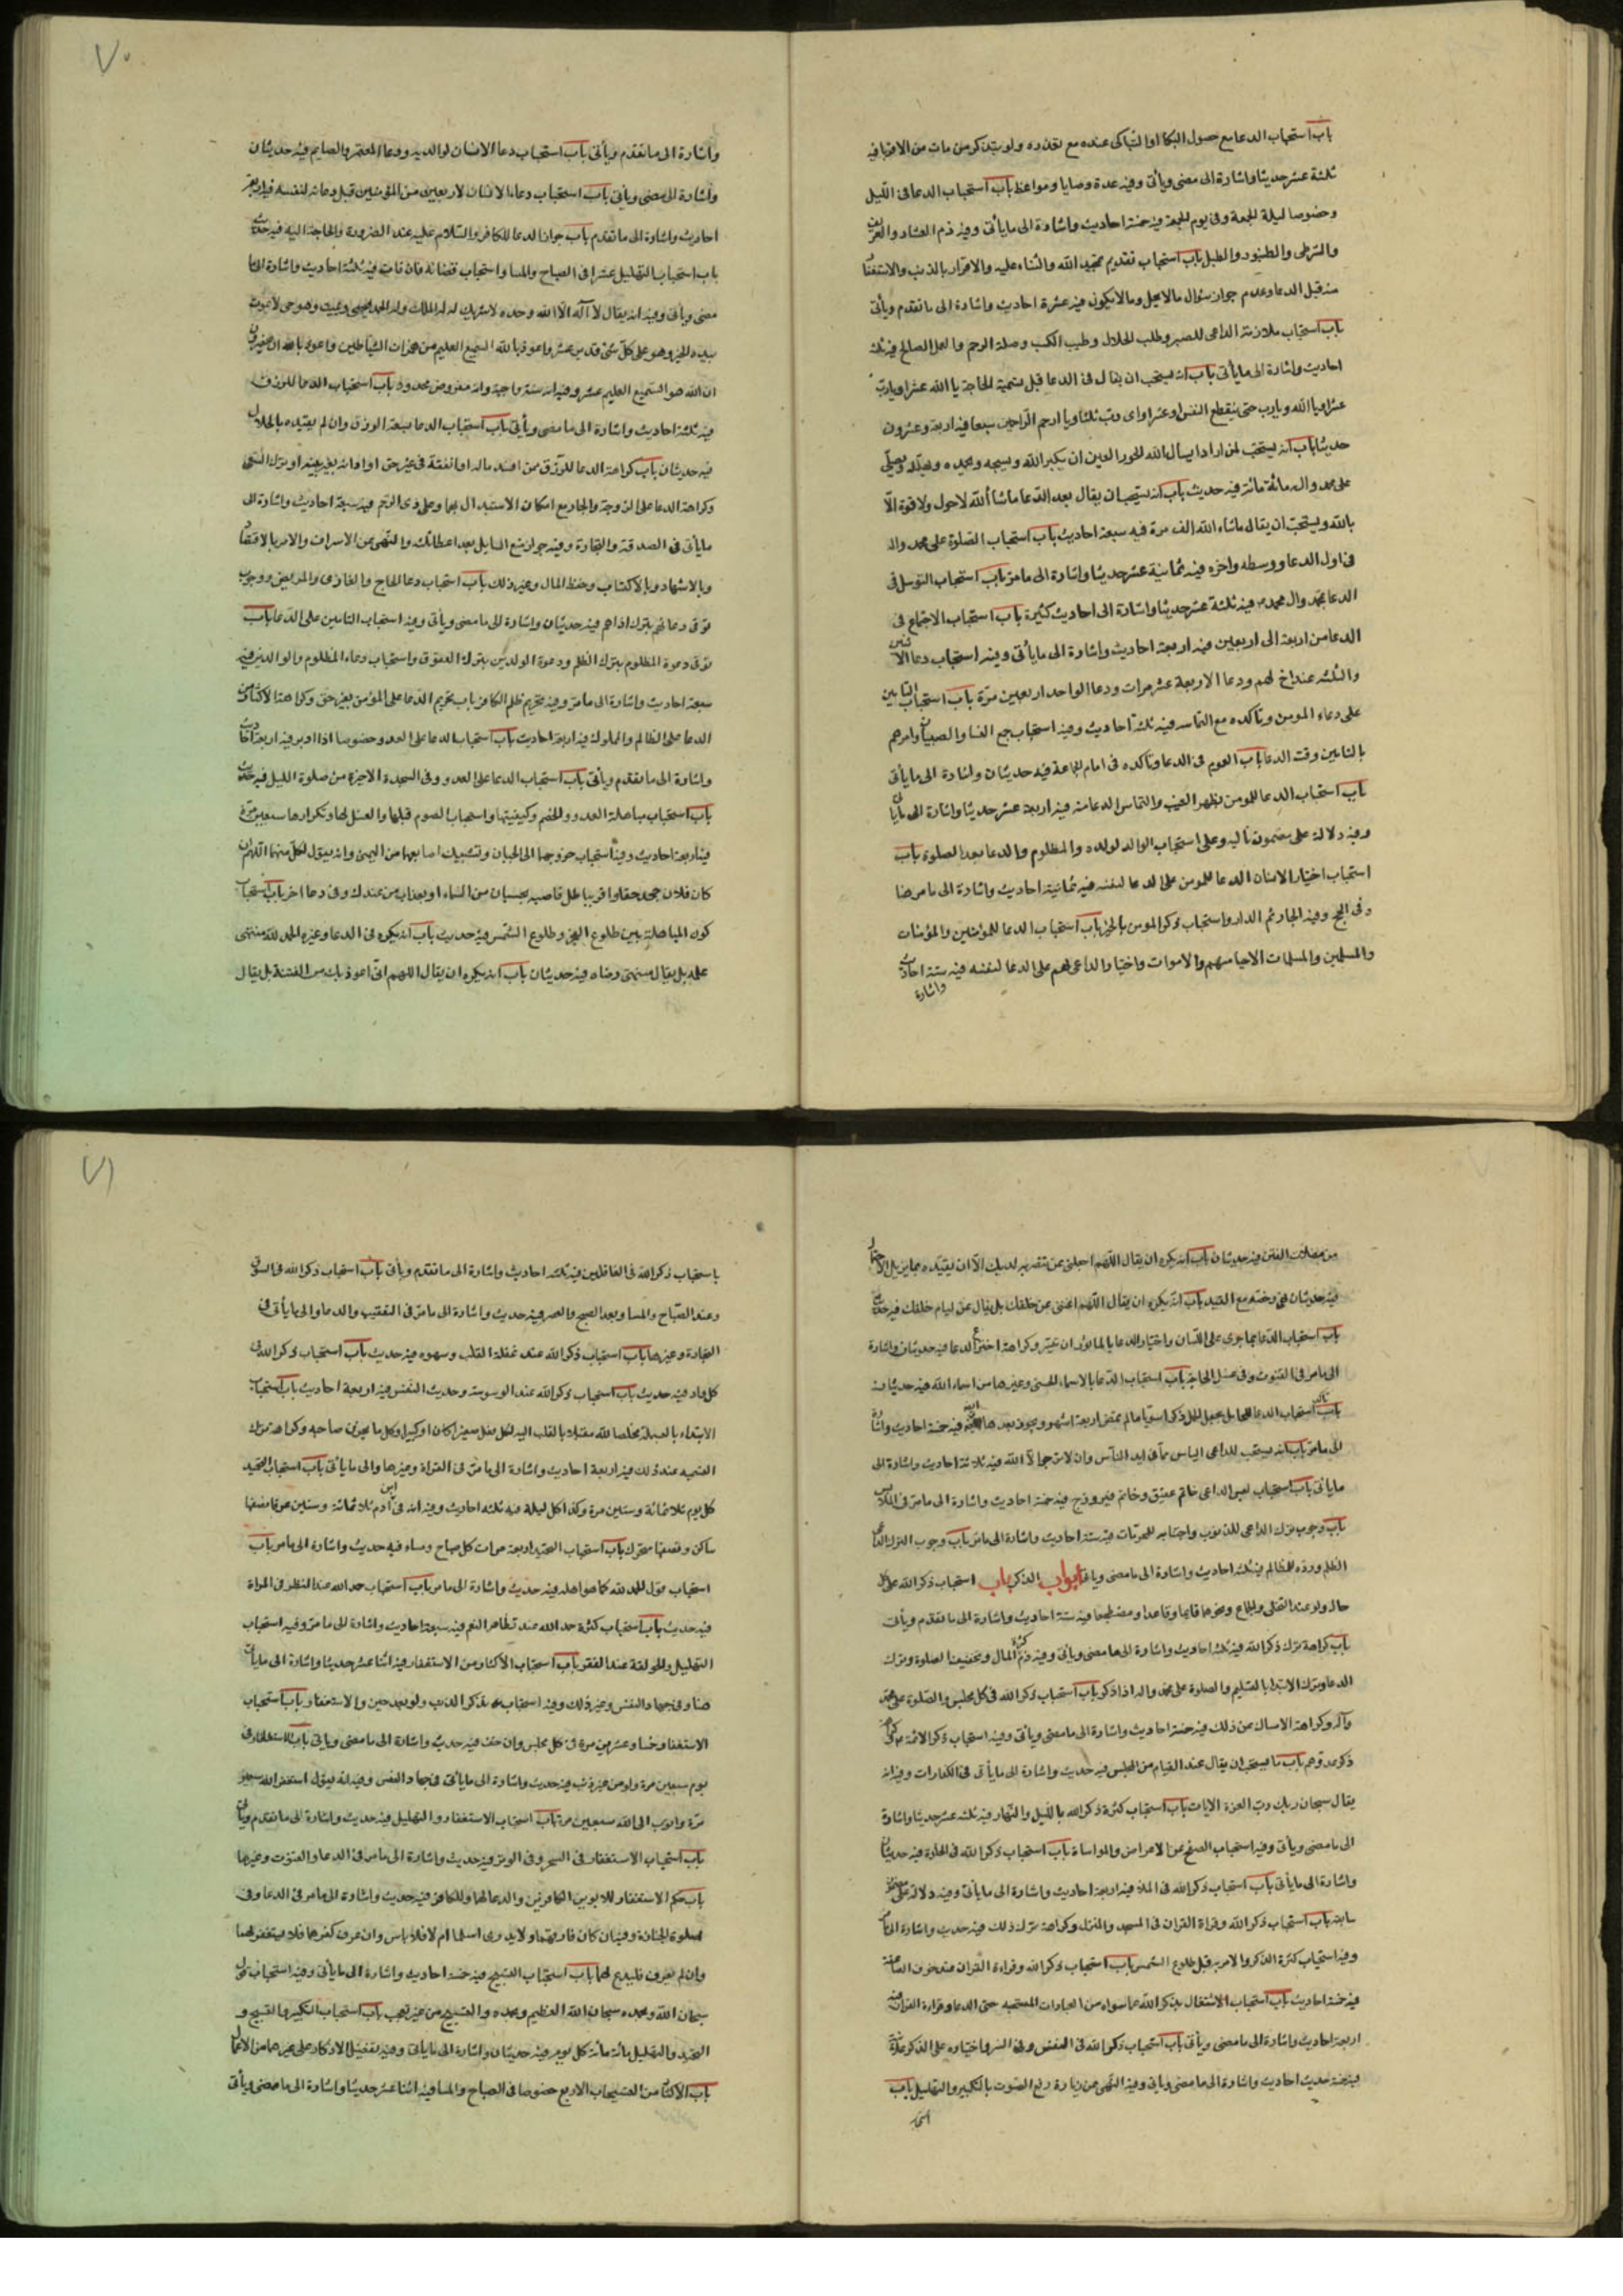 باب استحباب الدعا مع حصول البكا او التباكى عنده مع تعذره ولو بتذكر من مات من الاقربا فيه
ثلثة عشر حديثا واشارة الى مضى ويأتى وفيه عدة وصايا ومواعظ باب استحباب الدعا فى الليل
وخصوصا ليلة الجمعة وفى يوم الجمعة فيه خمسة احاديث واشارة الى ما يأتى وفيه ذم العشار والعريف
والشرطى والطنبور والطبل باب استحباب تقديم تمجيد الله والثناء عليه والاقرار بالذنب والاستغفار
منه قبل الدعا وعدم جواز سؤال مالا يحل ومالا يكون فيه عشرة احاديث واشارة الى ما تقدم ويأتى
باب استحباب ملازمة الداعى للصبر وطلب الحلال وطيب الكسب وصلة الرحم والعمل الصالح فيه ثلثة
احاديث واشارة الى ما يأتى باب انه يستحب ان يقال فى الدعا قبل تسمية الحاجة يا الله عشرا ويا رب
عشرا ويا الله ويا رب حتى ينقطع النفس او عشرا واى رب ثلثا ويا ارحم الراحمين سبعا فيه اربعة وعشرون
حديثا باب انه يستحب لمن اراد ان يسأل الله الحور العين ان يكبر الله ويسبحه ويحمده ويهلله ويصلى
على محمد واله مائة مائة فيه حديث باب انه يستحب ان يقال بعد الدعا ما شا الله لا حول ولا قوة الا
بالله ويستحب ان يقال ما شاء الله الف مرة فيه سبعة احاديث باب استحباب الصلوة على محمد واله
فى اول الدعا ووسطه واخره فيه ثمانية عشر حديثا واشارة الى ما مر باب استحباب التوسل فى
الدعا بمحمد وال محمد فيه ثلثة عشر حديثا واشارة الى احاديث كثيرة باب استحباب الاجتماع فى
الدعا من اربعة الى اربعين فيه اربعة احاديث واشارة الى ما يأتى وفيه استحباب دعا الاثنين
والثلثه عند اخ لهم ودعا الاربعة عشر مرات ودعا الواحد اربعين مرة باب استحباب التامين
على دعاء المومن وتأكده مع التماسه فيه ثلثة احاديث وفيه استحباب جمع النسا والصبيان وامرهم
بالتامين وقت الدعا باب العموم فى الدعا وتأكده فى امام الجماعة فيه حديثان واشارة الى ما يأتى
باب استحباب الدعا للمومن بظهر الغيب والتماس الدعا منه فيه اربعة عشر حديثا واشارة الى ما يأتى
وفيه دلالة على مضمون تاليه وعلى استحباب الوالد لولده والمظلوم والدعا بعد الصلوة باب
استحباب اختيار الانسان الدعا للمومن على الدعا لنفسه فيه ثمانية احاديث واشارة الى ما مر هنا
وفى الحج وفيه الجار ثم الدار واستحباب ذكر المومن بالخير باب استحباب الدعا للمؤمنين والمؤمنات
والمسلمين والمسلمات الاحيا منهم والاموات واختيار الداعى لهم على الدعا لنفسه فيه ستة احاديث
واشارة
٧٠
واشارة الى ما تقدم ويأتى باب استحباب دعا الانسان لوالديه ودعا المعتمر والصايم فيه حديثان
واشارة الى مضى ويأتى باب استحباب دعاء الانسان لاربعين من المؤمنين قبل دعائه لنفسه فيه اربعة
احاديث واشارة الى ما تقدم باب جواز الدعا للكافر والسلام عليه عند الضرورة والحاجة اليه فيه حديث
باب استحباب التهليل عشرا فى الصباح والمسا واستحباب قضائه فان فات فيه ثلثة احاديث واشارة الى ما
مضى ويأتى وفيه انه يقال لا اله الا الله وحده لا شريك له له الملك وله الحمد يحيى ويميت وهو حى لا يموت
بيده الخير وهو على كل شئ قدير عشر واعوذ بالله السميع العليم من همزات الشياطين واعوذ بالله ان يحضرون
ان الله هو السميع العليم عشر وفيه انه سنة واجبة وانه مفروض محدود باب استحباب الدعا للرزق
فيه ثلثة احاديث واشارة الى ما مضى ويأتى باب استحباب الدعا بسعة الرزق وان لم يقيده بالحلال
فيه حديثان باب كراهة الدعا للرزق ممن افسد ماله او انفقه فى غير حق او ادانه بغير بينة او ترك السعى
وكراهة الدعا على الزوجة والجار مع امكان الاستبدال بهما وعلى ذى الرحم فيه سبعة احاديث واشارة الى
ما يأتى فى الصدقة والتجارة وفيه جواز منع السايل بعد اعطا ثلثه والنهى عن الاسراف والامر بالاقتصاد
وبالاشهاد وبالاكتساب وحفظ المال وغير ذلك باب استحباب دعا الحاج والغازى والمريض ووجوب
توقى دعائهم بترك اذاهم فيه حديثان واشارة الى ما مضى ويأتى وفيه استحباب التامين على الدعا باب
توقى دعوة المظلوم بترك الظلم ودعوة الوالدين بترك العقوق واستحباب دعاء المظلوم والوالدين فيه
سبعة احاديث واشارة الى ما مر وفيه تحريم ظلم الكافر باب تحريم الدعا على المؤمن بغير حق وكراهة الاكثار من
الدعا على الظالم والملوك فيه اربعة احاديث باب استحباب الدعا على العدو خصوصا اذا ادبر فيه اربعة احاديث
واشارة الى ما تقدم ويأتى باب استحباب الدعا على العدو وفى السجدة الاخيرة من صلوة الليل فيه حديث
باب استحباب مباهلة العدو والخصم وكيفيتها واستحباب الصوم قبلها والغسل لها وتكرارها سبعين مرة
فيه اربعة احاديث وفيه استحباب خروجهما الى الجبان وتشبيك اصابعهما من اليمنى وانه يقول لكل منهما اللهم ان
كان فلان جحد حقا واقر بباطل فاصبه بحسبان من السماء او بعذاب من عندك وفى دعا اخر باب استحباب
كون المباهلة بين طلوع الفجر وطلوع الشمس فيه حديث باب انه يكره فى الدعا وغيره الحمد لله منتهى
علمه بل يقال منتهى رضاه فيه حديثان باب انه يكره ان يقال اللهم انى اعوذ بك من الفتنة بل يقال
من مضلات الفتن فيه حديثان باب انه يكره ان يقال اللهم اجعلنى ممن تنتصر به لدينك الا ان يقيده بما يزيل الاحتمال
فيه حديثان وخصه مع القيد باب انه يكره ان يقال اللهم اغننى عن خلقك بل يقال عن لئام خلقك فيه حديث
باب استحباب الدعا بما جرى على اللسان واختيار الدعا بالماثور ان تيسر وكراهة اختراع الدعا فيه حديثان واشارة
الى ما مر فى القنوت وفى غسل الحاجة باب استحباب الدعا بالاسماء الحسنى وغيرها من اسماء الله فيه حديثان
باب تاكد استحباب الدعا للحامل بجعل الحمل ذكرا سويا ما لم تمض اربعة اشهر ويجوز بعدها فيه خمسة احاديث واشارة
الى ما مر باب انه يستحب للداعى الياس مما فى ايدى الناس وان لا يرجو الا الله فيه ثلاثة احاديث واشارة الى
ما يأتى باب استحباب لبس الداعى خاتم عقيق وخاتم فيروزج فيه خمسة احاديث واشارة الى ما مر فى الملابس
باب وجوب ترك الداعى للذنوب واجتنابه للمحرمات فيه ستة احاديث واشارة الى ما مر باب وجوب ترك الداعى
الظلم ورده للمظالم فيه ثلثة احاديث واشارة الى ما مضى وياتى ابواب الذكر باب استحباب ذكر الله على كل
حال ولو عند التخلى والجماع ونحوهما قايما وقاعدا ومضطجعا فيه ستة احاديث واشارة الى ما تقدم ويأتى
باب كراهة ترك ذكر الله فيه ثلثة احاديث واشارة الى ما مضى ويأتى وفيه ذم كثرة المال وتخفيف الصلوة وترك
الدعا وترك الابتدا بالتسليم والصلوة على محمد واله اذا ذكر باب استحباب ذكر الله فى كل مجلس والصلوة على محمد
وآله وكراهة الامساك عن ذلك فيه خمسة احاديث واشارة الى ما مضى ويأتى وفيه استحباب ذكر الائمة وكراهة
ذكر عدوهم باب ما يستحب ان يقال عند القيام من المجلس فيه حديث واشارة الى ما يأتى فى الكفارات وفيه انه
يقال سبحان ربك رب العزة الايات باب استحباب كثرة ذكر الله بالليل والنهار فيه ثلثة عشر حديثا واشارة
الى ما مضى ويأتى وفيه استحباب الصفح عن الاعراض والمواساة باب استحباب ذكر الله فى الخلوة فيه حديثان
واشارة الى ما يأتى باب استحباب ذكر الله فى الملا فيه اربعة احاديث واشارة الى ما يأتى وفيه دلالة على مضمون
سابقه باب استحباب ذكر الله وقراة القران فى المسجد والمنزل وكراهة ترك ذلك فيه حديث واشارة الى ما
وفيه استحباب كثرة الذكر والامر به قبل طلوع الشمس باب استحباب ذكر الله وقراءة القران عند خوف الصاعقة
فيه خمسة احاديث باب استحباب الاشتغال بذكر الله عما سواه من العبادات المستحبة حتى الدعا وقراءة القران فيه
اربعة احاديث واشارة الى ما مضى ويأتى باب استحباب ذكر الله فى النفس وفى السر واختياره على الذكر علانية
فيه خمسة احاديث واشارة الى ما مضى ويأتى وفيه النهى عن زيادة رفع الصوت بالتكبير والتهليل باب
٧١
باستحباب ذكر الله فى الغافلين فيه ثلثة احاديث واشارة الى ما تقدم ويأتى باب استحباب ذكر الله فى السوق
وعند الصباح والمسا وبعد الصبح والعصر فيه حديث واشارة الى ما مر فى التعقيب والدعا والى ما يأتى فى
التجارة وغيرها باب استحباب ذكر الله عند غفلة القلب وسهوه فيه حديث باب استحباب ذكر الله فى
كل واد فيه حديث باب استحباب ذكر الله عند الوسوسة وحديث النفس فيه اربعة احاديث باب استحباب
الابتداء بالبسملة مخلصا لله مقبلا بالقلب اليه لكل فعل صغيرا كان او كبيرا وكل ما يحزن صاحبه وكراهة ترك
التسمية عند ذلك فيه اربعة احاديث واشارة الى ما مر فى القراة وغيرها والى ما يأتى باب استحباب التحميد
كل يوم ثلاثمائة وستين مرة وكذا كل ليلة فيه ثلثه احاديث وفيه ان فى ابن آدم ثلاثمائة وستين عرقا نصفها
ساكن ونصفها متحرك باب استحباب التحميد اربعة مرات كل صباح ومساء فيه حديث واشارة الى ما مر باب
استحباب قول الحمد لله كما هو اهله فيه حديث واشارة الى ما مر باب استحباب حمد الله عند النظر فى المراة
فيه حديث باب استحباب كثرة حمد الله عند تظاهر النعم فيه سبعة احاديث واشارة الى ما مر وفيه استحباب
التهليل والحولقة عند الفقر باب استحباب الاكثار من الاستغفار فيه اثنا عشر حديثا واشارة الى ما يأتى
هنا وفى جهاد النفس وغير ذلك وفيه استحباب تذكر الذنب ولو بعد حين والاستغفار باب استحباب
الاستغفار خمسا وعشرين مرة فى كل مجلس وان خف فيه حديث واشارة الى ما مضى وياتى باب الاستغفار فى
يوم سبعين مرة ولو من غير ذنب فيه حديث واشارة الى ما يأتى فى جهاد النفس وفيه انه يقول استغفر الله سبعين
مرة واتوب الى الله سبعين مرة باب استحباب الاستغفار والتهليل فيه حديث واشارة الى ما تقدم ويأتى
باب استحباب الاستغفار فى السحر وفى الوتر فيه حديث واشارة الى ما مر فى الدعا والقنوت وغيرهما
باب حكم الاستغفار للابوين الكافرين والدعا لهما وللكافر فيه حديث واشارة الى ما مر فى الدعا وفى
صلوة الجنازة وفيه ان كان فارقهما ولا يدرى اسلما ام لا فلا باس وان عرف كفرهما فلا يستغفر لهما
وان لم يعرف فليدع لهما باب استحباب التسبيح فيه خمسة احاديث واشارة الى ما يأتى وفيه استحباب قول
سبحان الله وبحمده سبحان الله العظيم وبحمده والتسبيح من غير تعجب باب استحباب التكبير والتسبيح و
التحميد والتهليل مائة مائة كل يوم فيه حديثان واشارة الى ما يأتى وفيه تفضيل الاذكار على غيرها من الاعمال
باب الاكثار من التسبيحات الاربع خصوصا فى الصباح والمسا فيه اثنا عشر حديثا واشارة الى ما مضى ويأتى